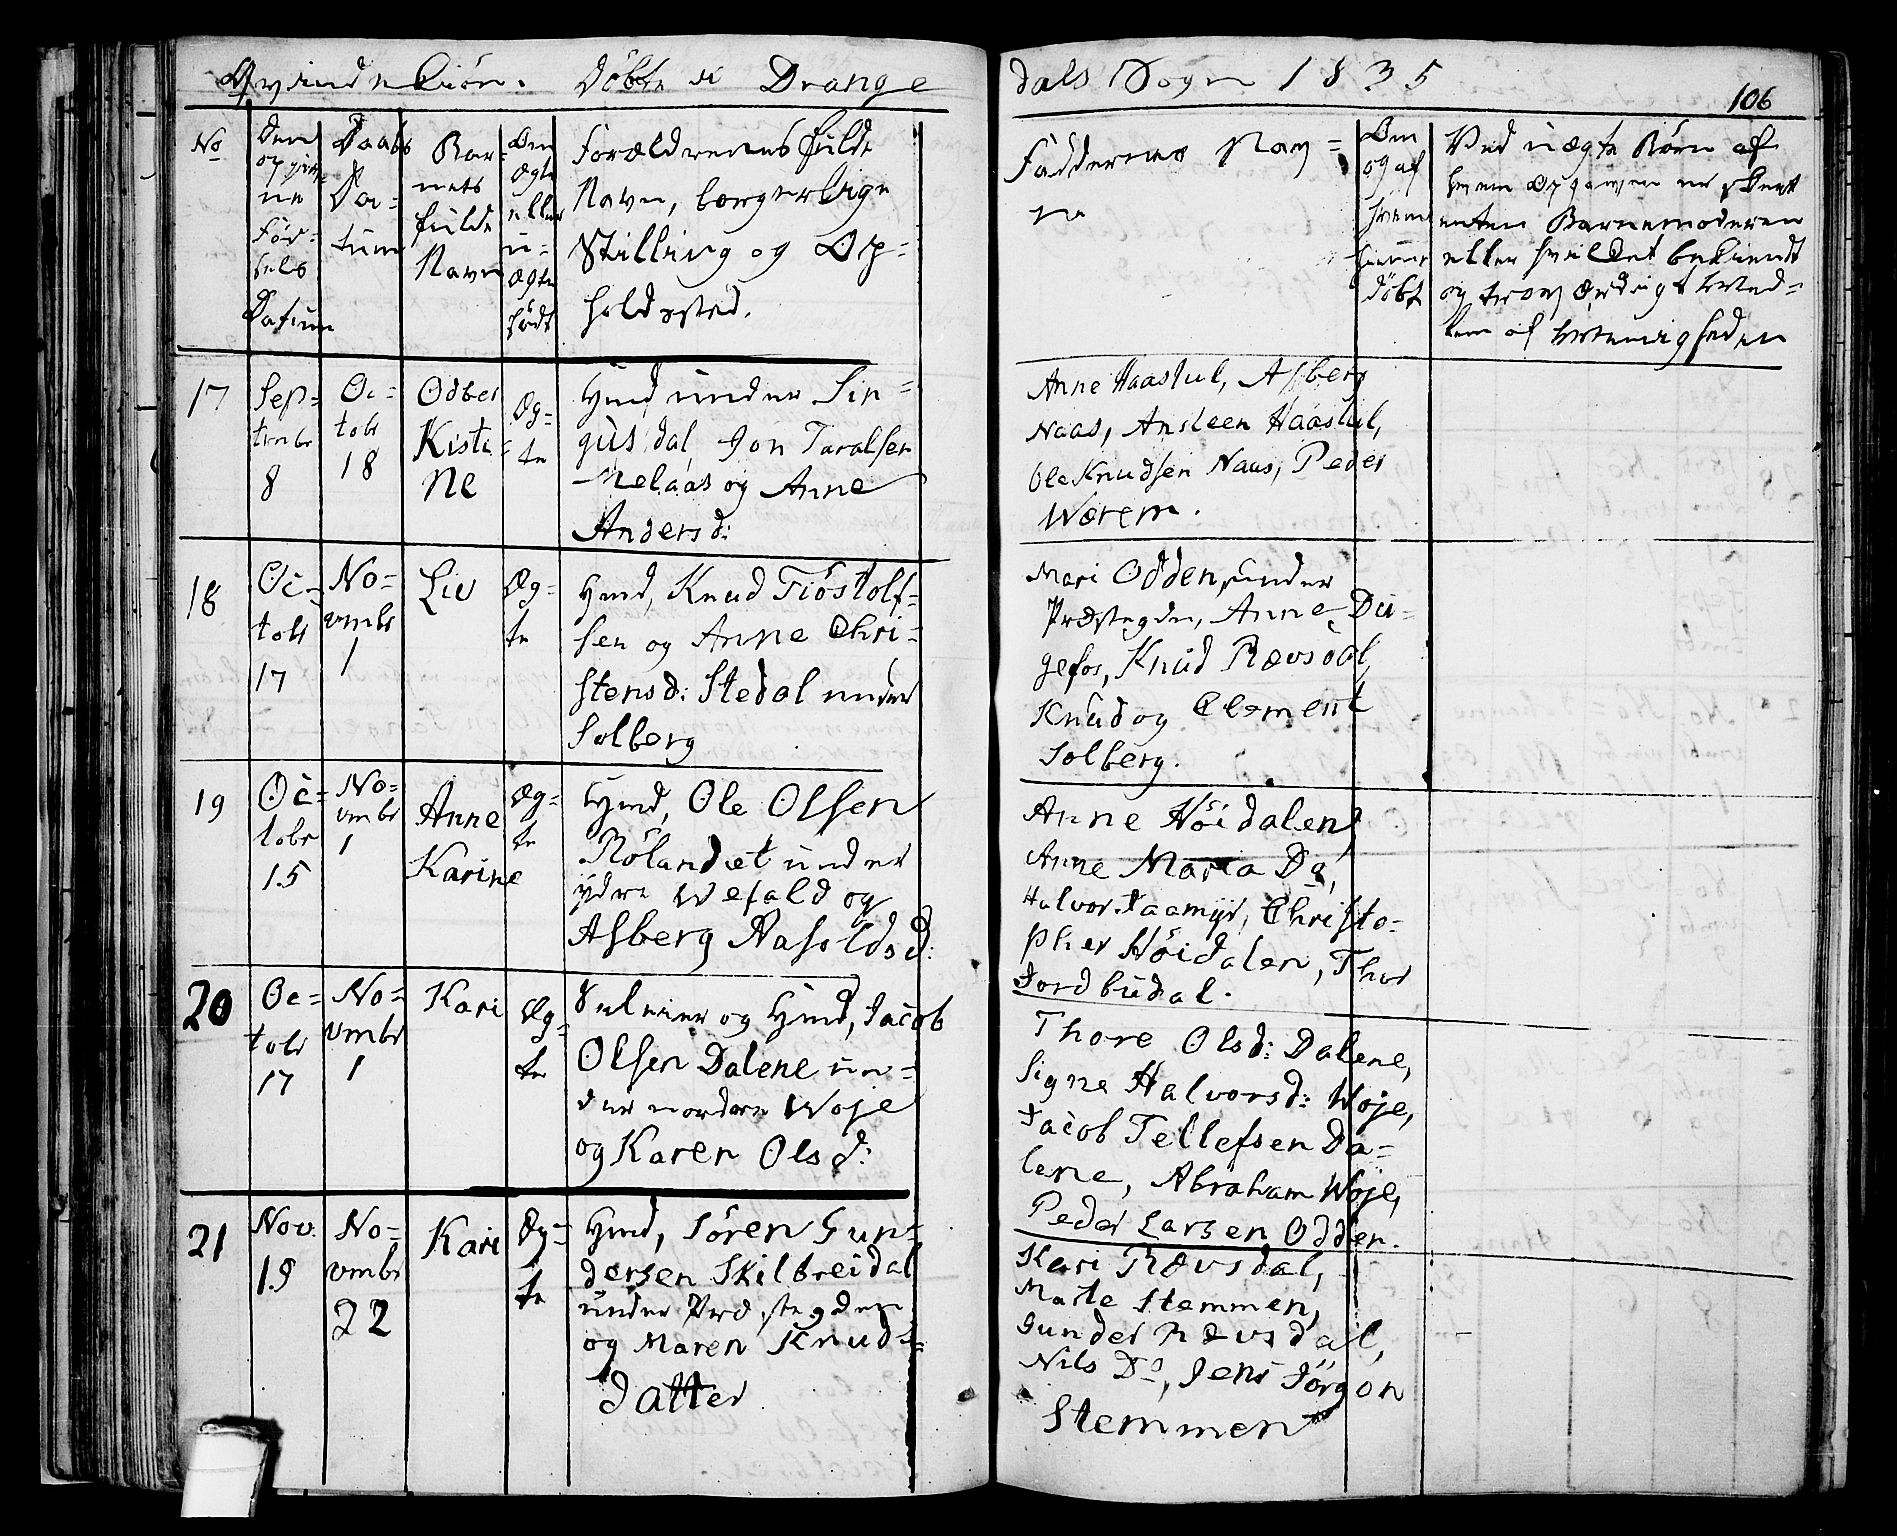 Qvindekiön. Døbte i Drange
dals Sogn 1835
106
No
Den
opgiv
ne
Fød-
sels
Datum
Daabs
Da-
tum
Bar-
nets
fulde
Navn
Om
Ægte
eller
u-
ægte
født
Forældrenes fulde
Navn, borgerlige
Stilling og Op-
holdssted.
Faddernes Nav-
ne
Om
og af
hvem
hiemme
døbt
Ved uægte Børn af
hvem Opgaven er skeet
enten Barnemoderen
eller hvilket bekiendt
og troværdigt Med-
lem af Menigheden
17
Sep-
tember
8
Oc-
tobr
18
Odber
Kisti
ne
Æg-
te
Hmd under Sin-
gusdal, Jon Taralsen
Melaas og Anne
Andersd:
Anne Haastul, Asberg
Naas, Ansteen Haastul,
Ole Knudsen Naas, Peder
Wærem.
18
Oc-
tobr
17
No-
vembr
1
Liv
Æg-
te
Hmd, Knud Tiöstolf-
sen og Anne Chri-
stensd: Stedal under
Solberg
Mari Odden, under
Præstegden, Anne Du-
gefos, Knud Rævsdal,
Knud og Clement
Solberg.
19
Oc-
tobr
15
No-
vmbr
1
Anne
Karine
Æg-
te
Hmd, Ole Olsen
Rölandet under
ydre Wefald og
Asberg Nasoldsd:
Anne Höidalen
Anne Maria Do,
Halvor Taamyr, Christo-
pher Höidalen, Thor
Jordbudal.
20
Oc-
tobr
17
No-
vmbr
1
Kari
Æg-
te
Selveier og Hmd, Jacob
Olsen Dalene un-
der nordre Woje
og Karen Olsd:
Thore Olsd: Dalene,
Signe Halvorsd: Woje,
Jacob Tellefsen Da-
lene, Abraham Woje,
Peder Larsen Odden.
21
Nov.
19
No-
vmbr
22
Kari
Æg-
te
Hmd, Sören Gun-
dersen Skilbreidal
under Præstegden
og Maren Knuds-
datter
Kari Rævsdal,
Marte Stemmen,
Gunder Rævsdal,
Nils Do, Jens Jörgon
Stemmen